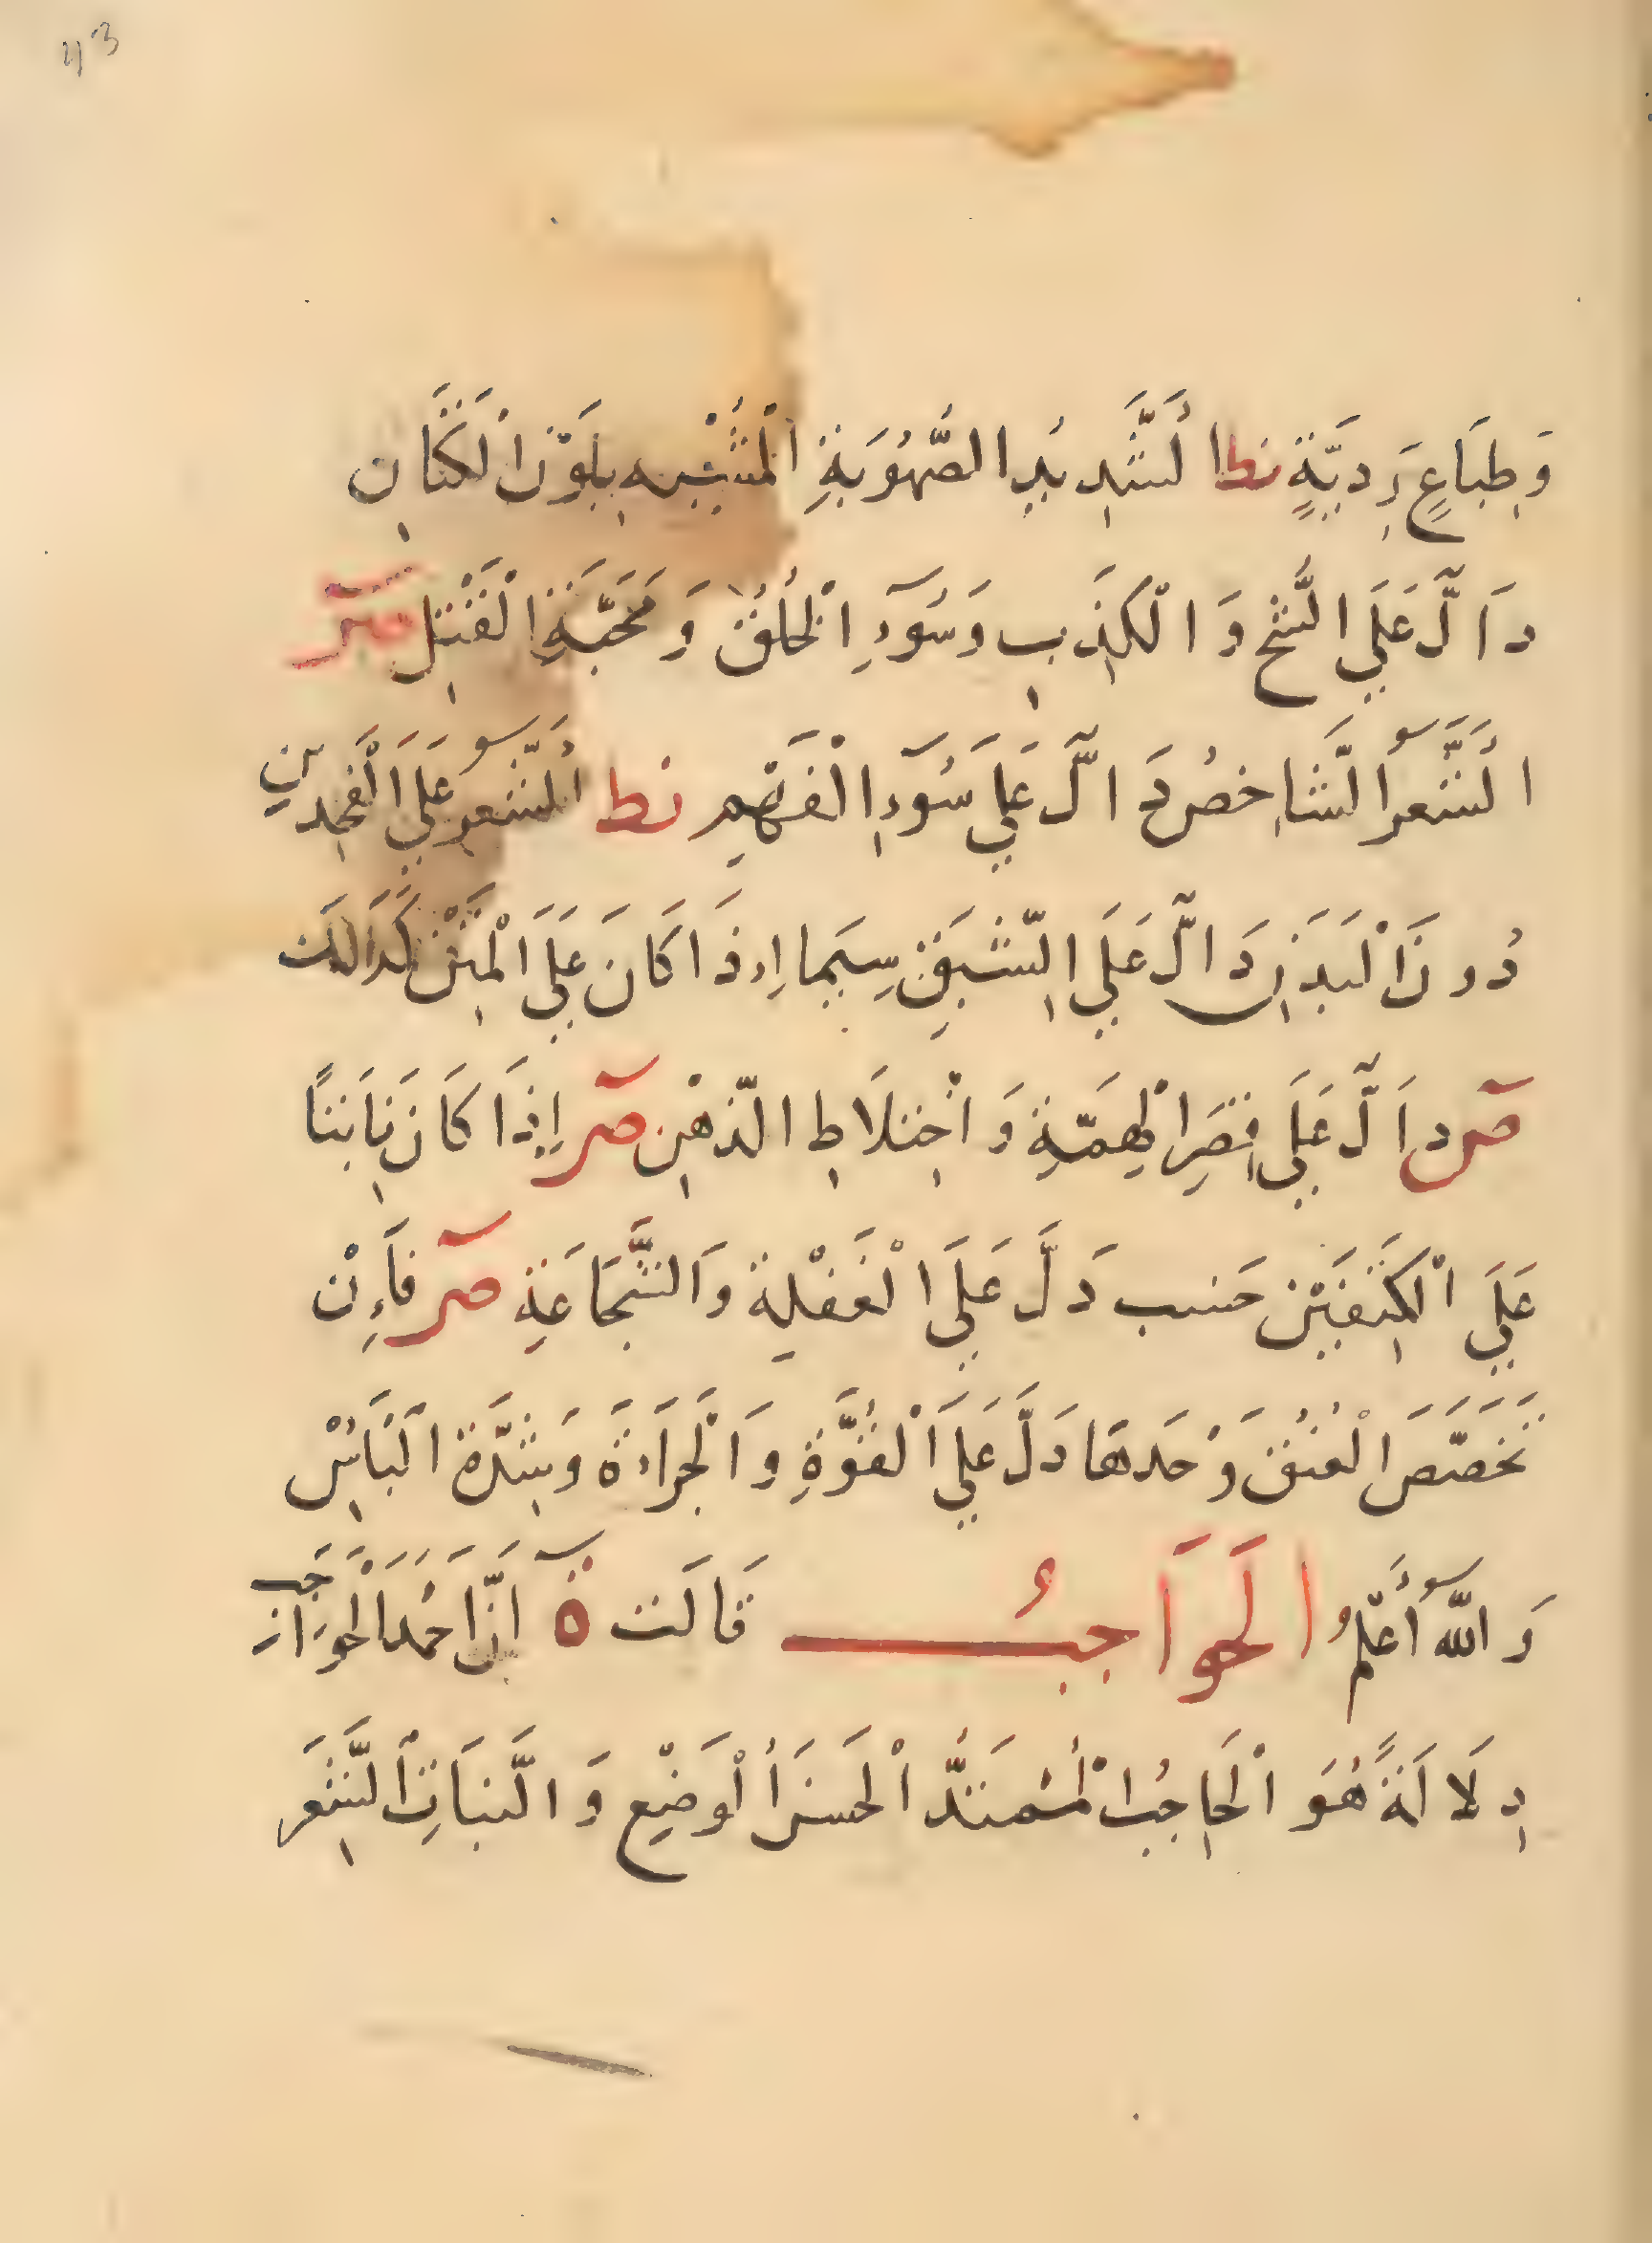 43
وَطِبَاعٍ رَدِيَّةٍ نط الشَّدِيدُ الصُّهُوبَةِ الْمُشْبِه بِلَوْنِ الْكَتَّانِ
دَالٌّ عَلَي الشُّح وَالْكَذِبِ وَسُوٓءِ الْخُلُقِ وَمَحَبَّةِ الْقَتْلِ صر
الشَّعر الشَّاخصُ دَالٌّ عَلي سُوٓءِ الْفَهْمِ نط الشَّعر عَلَي الْفَخِدين
دُونَ الْبَدَنِ دَالٌّ عَلَي الشَّبَقِ سِيَما إِذَا كَانَ عَلَي الْمَتْنِ كَذَالِكَ
صر دَالٌّ عَلَي قِصَرِ الْهِمَّةِ وَاخْتِلَاطِ الذِّهْنِ صر إِذَا كَانَ نَابتًا
عَلَي الْكَتِفَيْن حَسب دَلَّ عَلَي الْغَفْلَةِ وَالشَّجَاعَةِ صر فَإِنْ
تَخَصَّصَ الْعُنُقَ وَحْدَهَا دَلَّ عَلَي الْقُوَّةِ وَالْجَرَاءةَ وَشِدَّة الْبَأْسِ
وَاللّٰه أَعْلمُ الْحَوَاجبُ قَالَت ةٓ إنَّ احْمَدَ الْحَوَاجب
دِلَالَةً هُوَ الْحَاجِبُ الْمُمْتَدُّ الْحَسَن الْوَضْعِ وَالنَّبَاتِ الشَّعَر